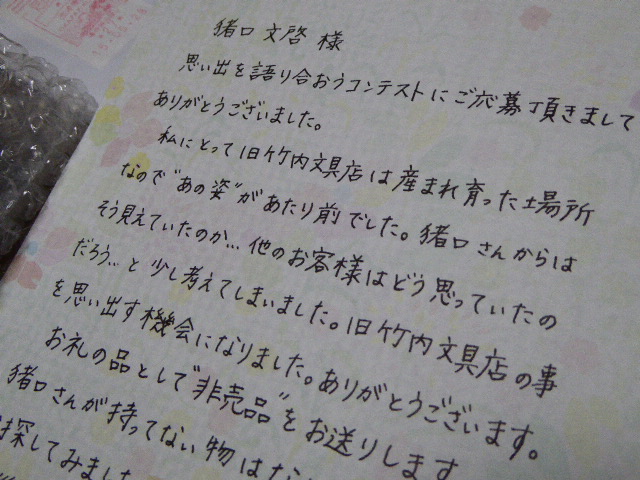 猪口 文啓 様
思い出を語り合おうコンテストにご応募頂きまして
ありがとうございました。
私にとって旧竹内文具店は産まれ育った場所
なので"あの姿"があたり前でした。猪口さんからは
そう見えていたのか…他のお客様はどう思っていたの
だろう…と少し考えてしまいました。旧竹内文具店の事
を思い出す機会になりました。ありがとうございます。
お礼の品として"非売品"をお送りします
猪口さんが持ってない物はな
探してみました